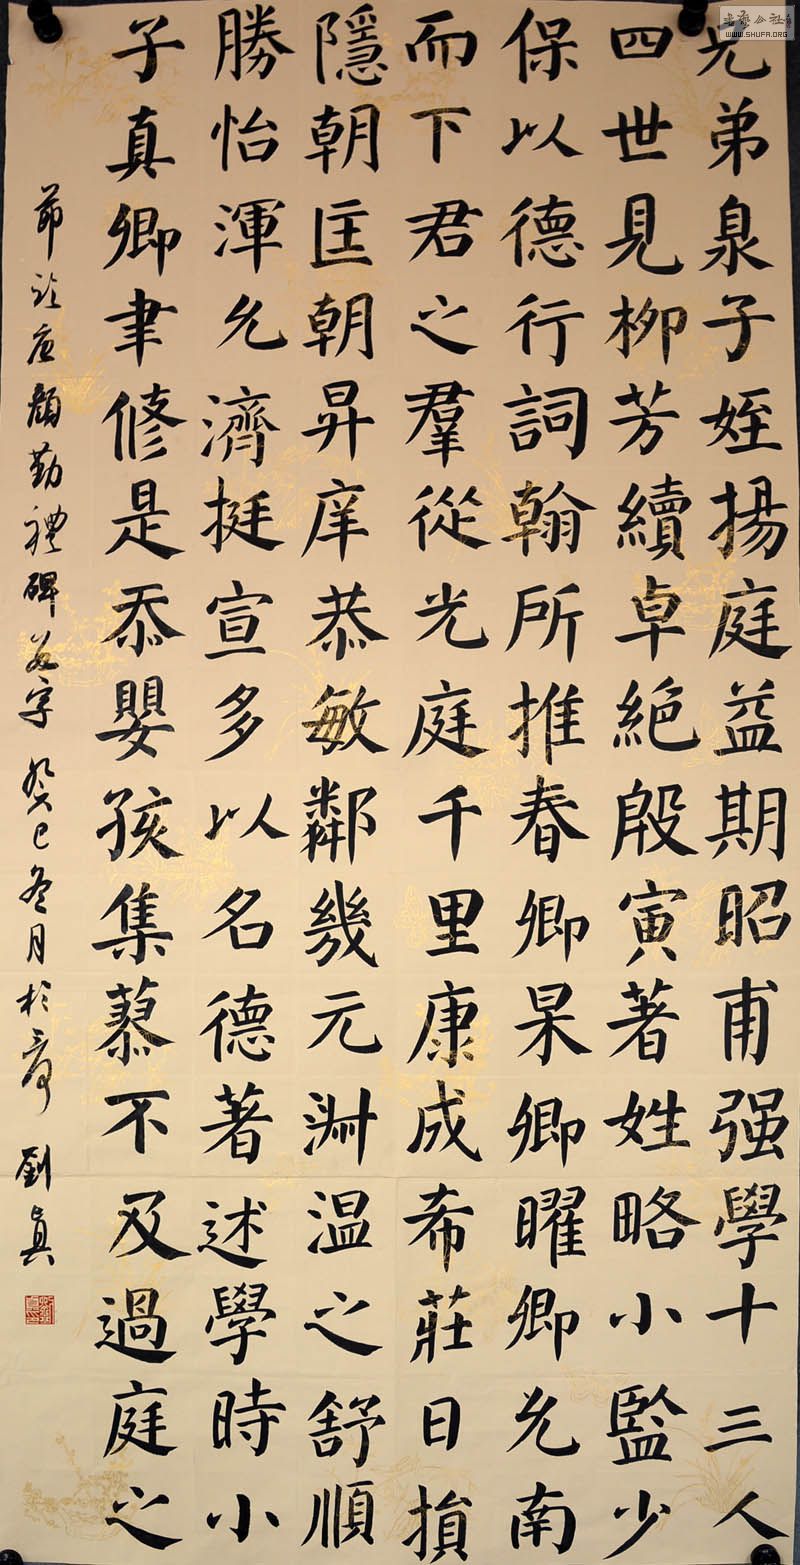 兄弟泉子姪揚庭益期昭甫强學十三人
四世見柳芳續卓絶殷寅著姓略小監少
保以德行詞翰所推春卿杲卿曜卿允南
而下君之羣從光庭千里康成希莊日損
隱朝匡朝昇庠恭敏鄰幾元淑温之舒順
勝怡渾允濟挺宣多以名德著述學時小
子真卿聿修是忝嬰孩集慕不及過庭之
節臨唐顏勤禮碑
字 癸巳冬月於
劉真
WWW.SHUFA.ORG